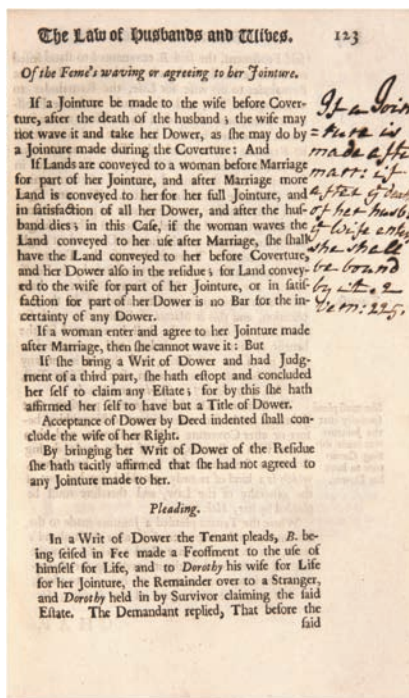 The Law of Husbands and Wives. 123
Of the Feme's waving or agreeing to her Jointure.
If a Jointure be made to the wife before Cover-
ture, after the death of the husband; the wife may
not wave it and take her Dower, as she may do by
a Jointure made during the Coverture: And
If Lands are conveyed to a woman before Marriage
for part of her Jointure, and after Marriage more
Land is conveyed to her for her full Jointure, and
in satisfaction of all her Dower, and after the hus-
band dies; in this Case, if the woman waves the
Land conveyed to her use after Marriage, she shall
have the Land conveyed to her before Coverture,
and her Dower also in the residue; for Land convey-
ed to the wife for part of her Jointure, or in satis-
faction for part of her Dower is no Bar for the in-
certainty of any Dower.
If a woman enter and agree to her Jointure made
after Marriage, then she cannot wave it: But
If she bring a Writ of Dower and had Judg-
ment of a third part, she hath estopt and concluded
her self to claim any Estate; for by this she hath
affirmed her self to have but a Title of Dower.
Acceptance of Dower by Deed indented shall con-
clude the wife of her Right.
By bringing her Writ of Dower of the Residue
she hath tacitly affirmed that she had not agreed to
any Jointure made to her.
Pleading.
In a Writ of Dower the Tenant pleads, B. be-
ing seised in Fee made a Feoffment to the use of
himself for Life, and to Dorothy his wife for Life
for her Jointure, the Remainder over to a Stranger,
and Dorothy held in by Survivor claiming the said
Estate. The Demandant replied, That before the
said
If a Join
=ture is
made afte
marr: if
after y death
of her husb
y Wife enter
she shall
be bound
by it. 2
Vern: 225.